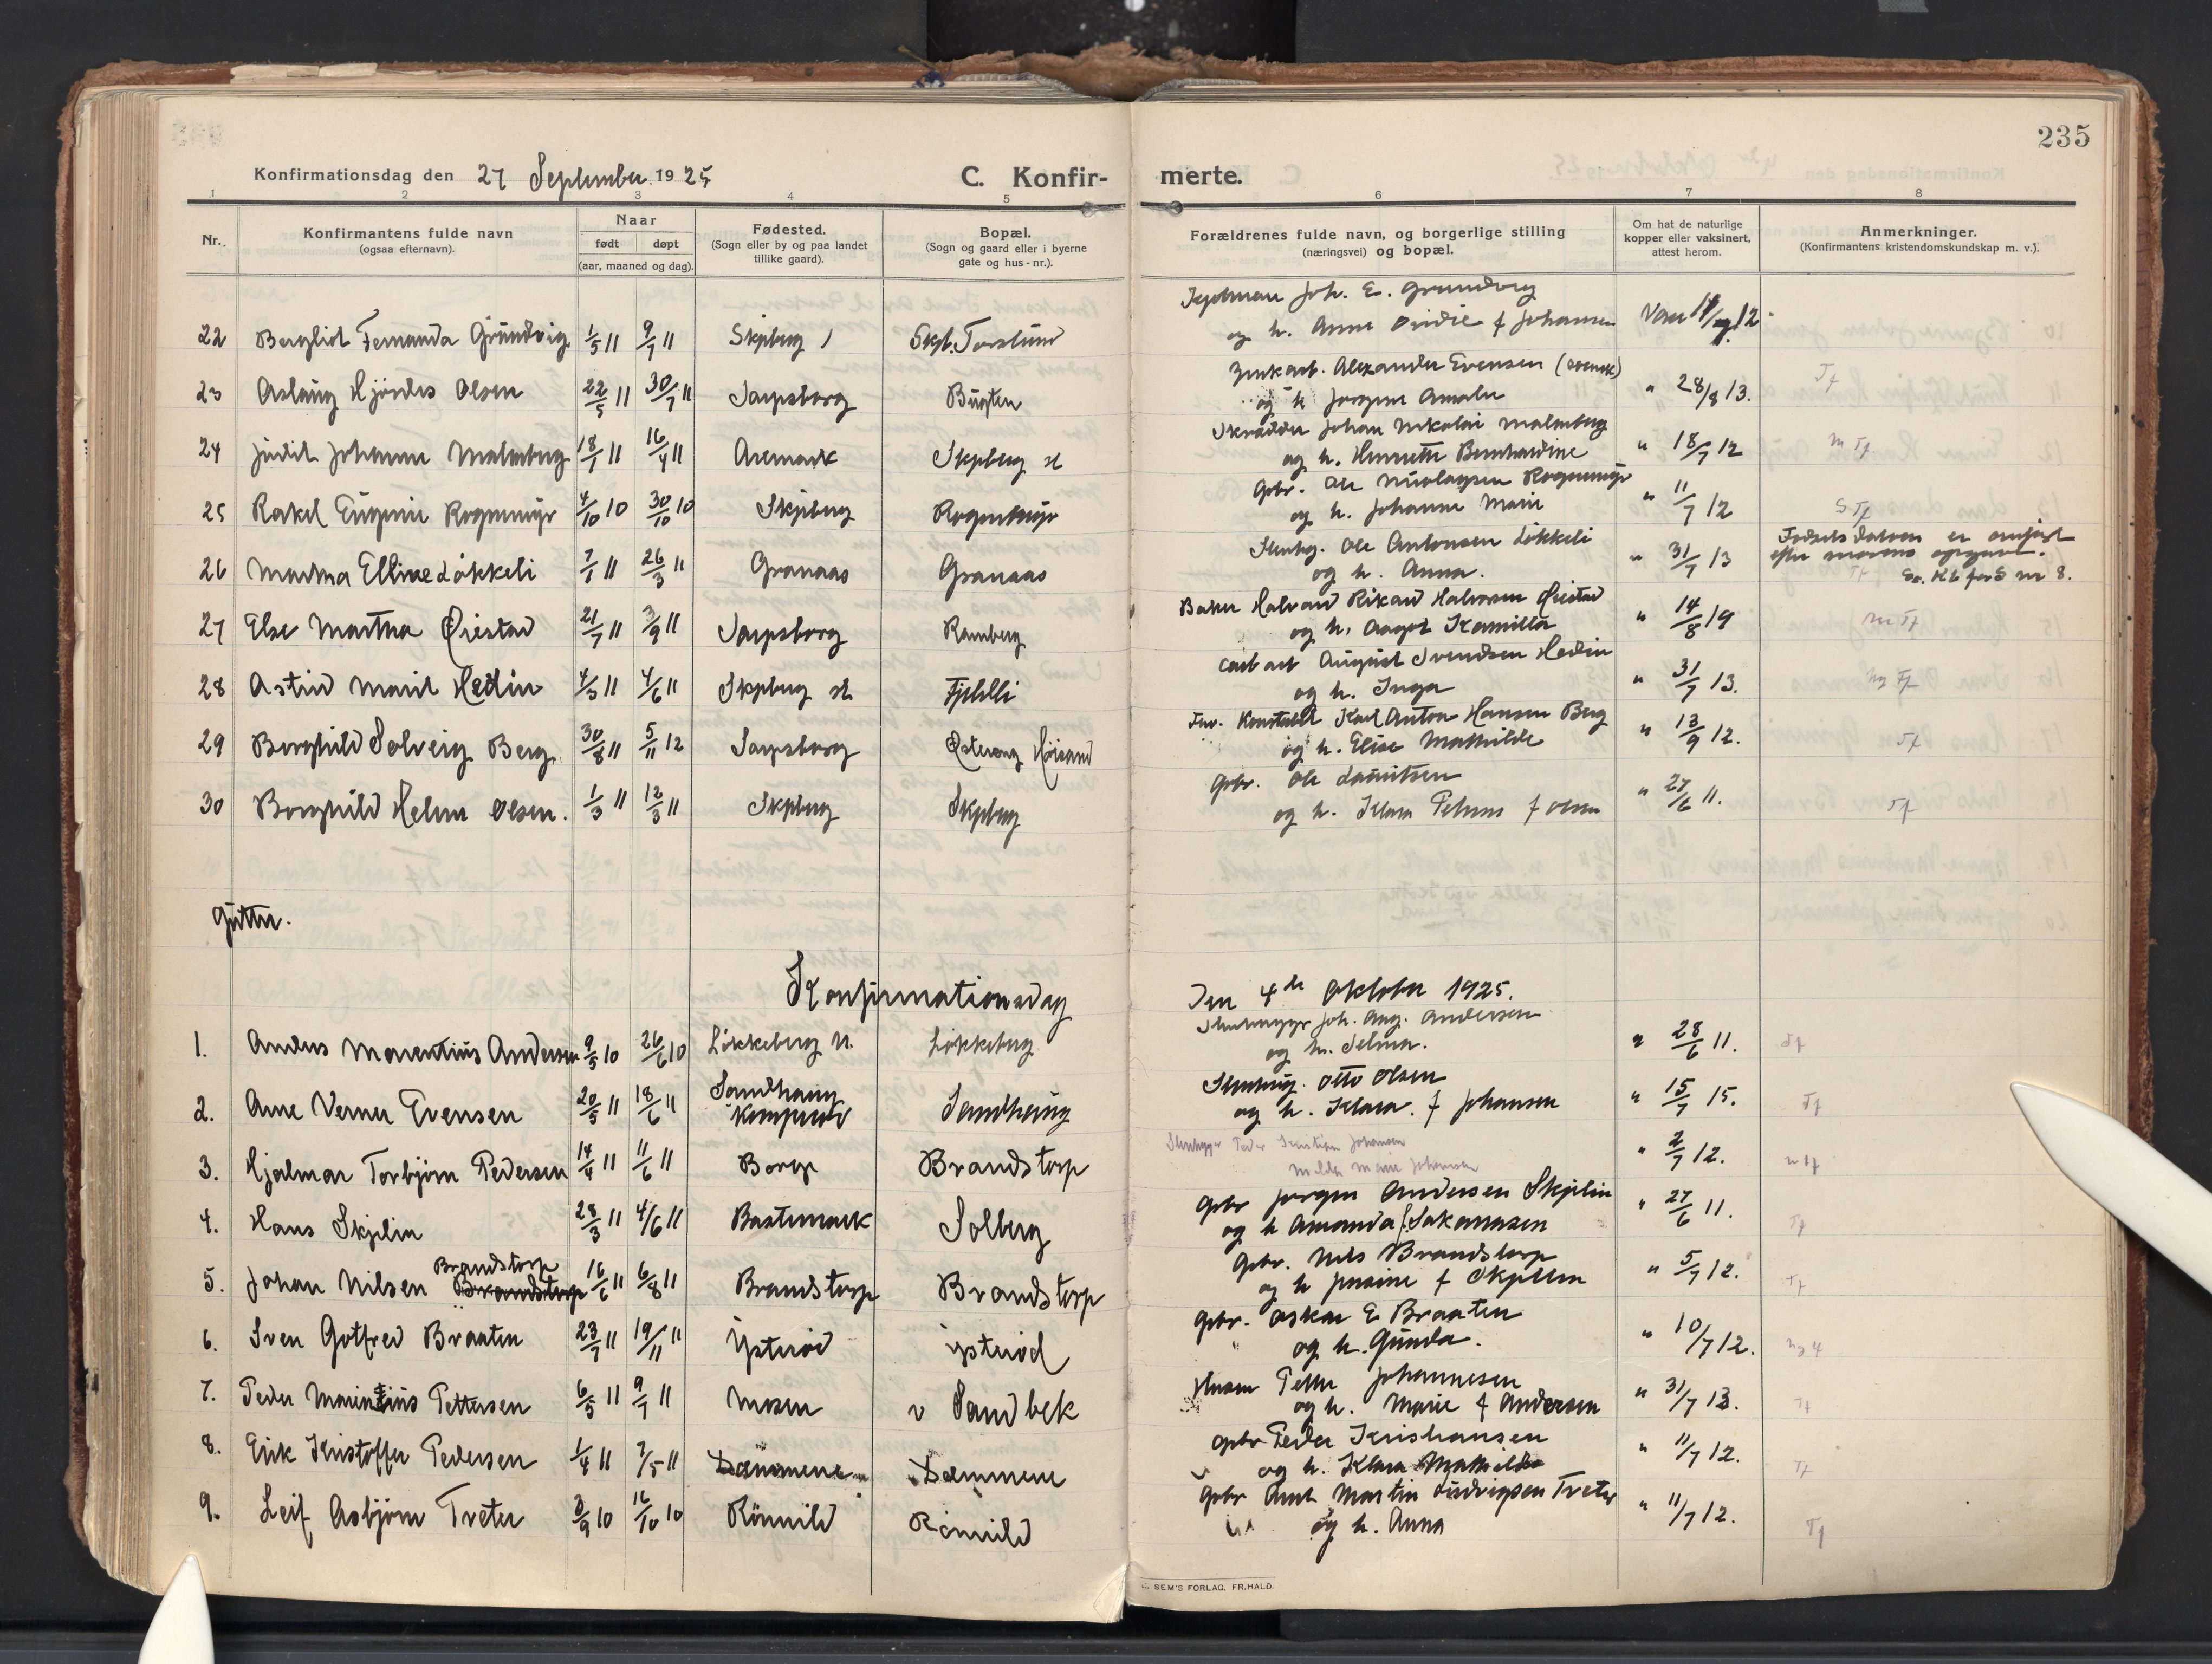 235
Konfirmationsdag den 27 September 1925
C. Konfirmerte.
1 2 3 4 5 6 7 8
Nr.
Konfirmantens fulde navn
(ogsaa efternavn).
Naar
født døpt
(aar, maaned og dag).
Fødested.
(Sogn eller by og paa landet
tillike gaard).
Bopæl.
(Sogn og gaard eller i byerne
gate og hus-nr.).
Forældrenes fulde navn, og borgerlige stilling
(næringsvei) og bopæl.
Om hat de naturlige
kopper eller vaksinert,
attest herom.
Anmerkninger.
(Konfirmantens kristendomskundskap m. v.).
22 Bergliot Fernanda Gründvig 1/5 11 9/7 11 Skjeberg Skjb. Torslund
Joh. E. Grundvig
og h. Anne Ovidie f Johansen
23 Aslaug Hjördis Olsen 22/5 11 30/7 11 Sarpsborg Bugten
Alexander Evensen (svensk)
og h Jørgine Amalie
" 28/8 13. Tf
24 Judit Johanne Malmberg 18/1 11 16/4 11 Aremark Skjeberg st
Skrædder Johan Nikolai Malmberg
og h. Henriette Bernhardine
" 18/7 12 m Tf
25 Rakel Eugenie Rognmyr 4/10 10 30/10 10 Skjeberg Rognmyr
Gbr. Ole Nicolaysen Rognmyr
og h. Johanne Marie
" 11/7 12 S Tf
26 Martha Elline Løkkeli 7/1 11 26/3 11 Granaas Granaas
Stenhg. Ole Antonsen Løkkeli
og h. Anna.
" 31/7 13
Fødsels datoen er anført
efter morens opgave.
27 Else Martha Øiestad 21/7 11 3/9 11 Sarpsborg Ramberg
Baker Halvard Rikard Halvorsen Øiestad
og h. Aagot Kamilla
" 14/8 19 m Tf
28 Astrid Marit Hedin 4/3 11 4/6 11 Skjeberg st Fjeldli
August Svendsen Hedin
og h. Inga
" 31/7 13. ng Tf
29 Borghild Solveig Berg 30/8 11 5/11 12 Sarpsborg Østeng Høisand
Konstabel Karl Anton Hansen Berg
og h. Elise Mathilde
" 13/9 12. Tf
30 Borghild Helene Olsen. 1/3 11 12/3 11 Skjeberg Skjeberg
Gbr. Ole Lauritsen
og h. Klara f Olsen
" 27/6 11. Tf
Gutter.
Konfirmationsdag
Den 4de Oktober 1925.
1. Anders Marentius Andersen 9/5 10 26/6 10 Løkkeberg N. Løkkeberg
Stenhugger Joh. Aug. Andersen
og h. Selma.
" 28/6 11.
2. Arne Verner Evensen 20/5 11 18/6 11 Sandhaug Sandhaug
Stenhug. Otto Olsen
og h. Klara. f Johansen
" 15/7 15. Tf
3. Hjalmar Torbjørn Pedersen 14/4 11 11/6 11 Borge Brandstorp
Stenhugger Peder Kristian Johansen
Milda Marie Johansen
" 2/7 12.
4. Hans Skjelin 28/3 11 4/6 11 Bastumark Solberg
Gbr Jørgen Andersen Skjelin
og h Amanda f. Sakariasen
" 27/6 11. Tf
5. Johan Nilsen Brandstorp 16/6 11 6/8 11 Brandstorp Brandstorp
Gbr. Nils Brandstorp
og h Josine f
" 5/7 12. Tf
6. Sven Gotfred Braaten 23/7 11 19/11 11 Ysterød Ysterød
Gbr. Oskar E Braaten
og h. Gunda.
" 10/7 12.
7. Peder Marentius Pettersen 6/5 11 9/7 11 Mosen v Sandbek
Petter Johannesen
og h. Marie f Andersen
" 31/7 13. Tf
8. Erik Kristoffer Pedersen 1/4 11 7/5 11 Dæmmene Dæmmene
Gbr Peder Kristiansen
og h. Klara Mathilde
" 11/7 12. Tf
9. Leif Asbjørn Treter 3/9 10 16/10 10 Rømild Rømild
Gbr Arnt Martin Ludvigsen Treter
og h. Anna
" 11/7 12. Tf
SEM'S FORLAG, FR.HALD.